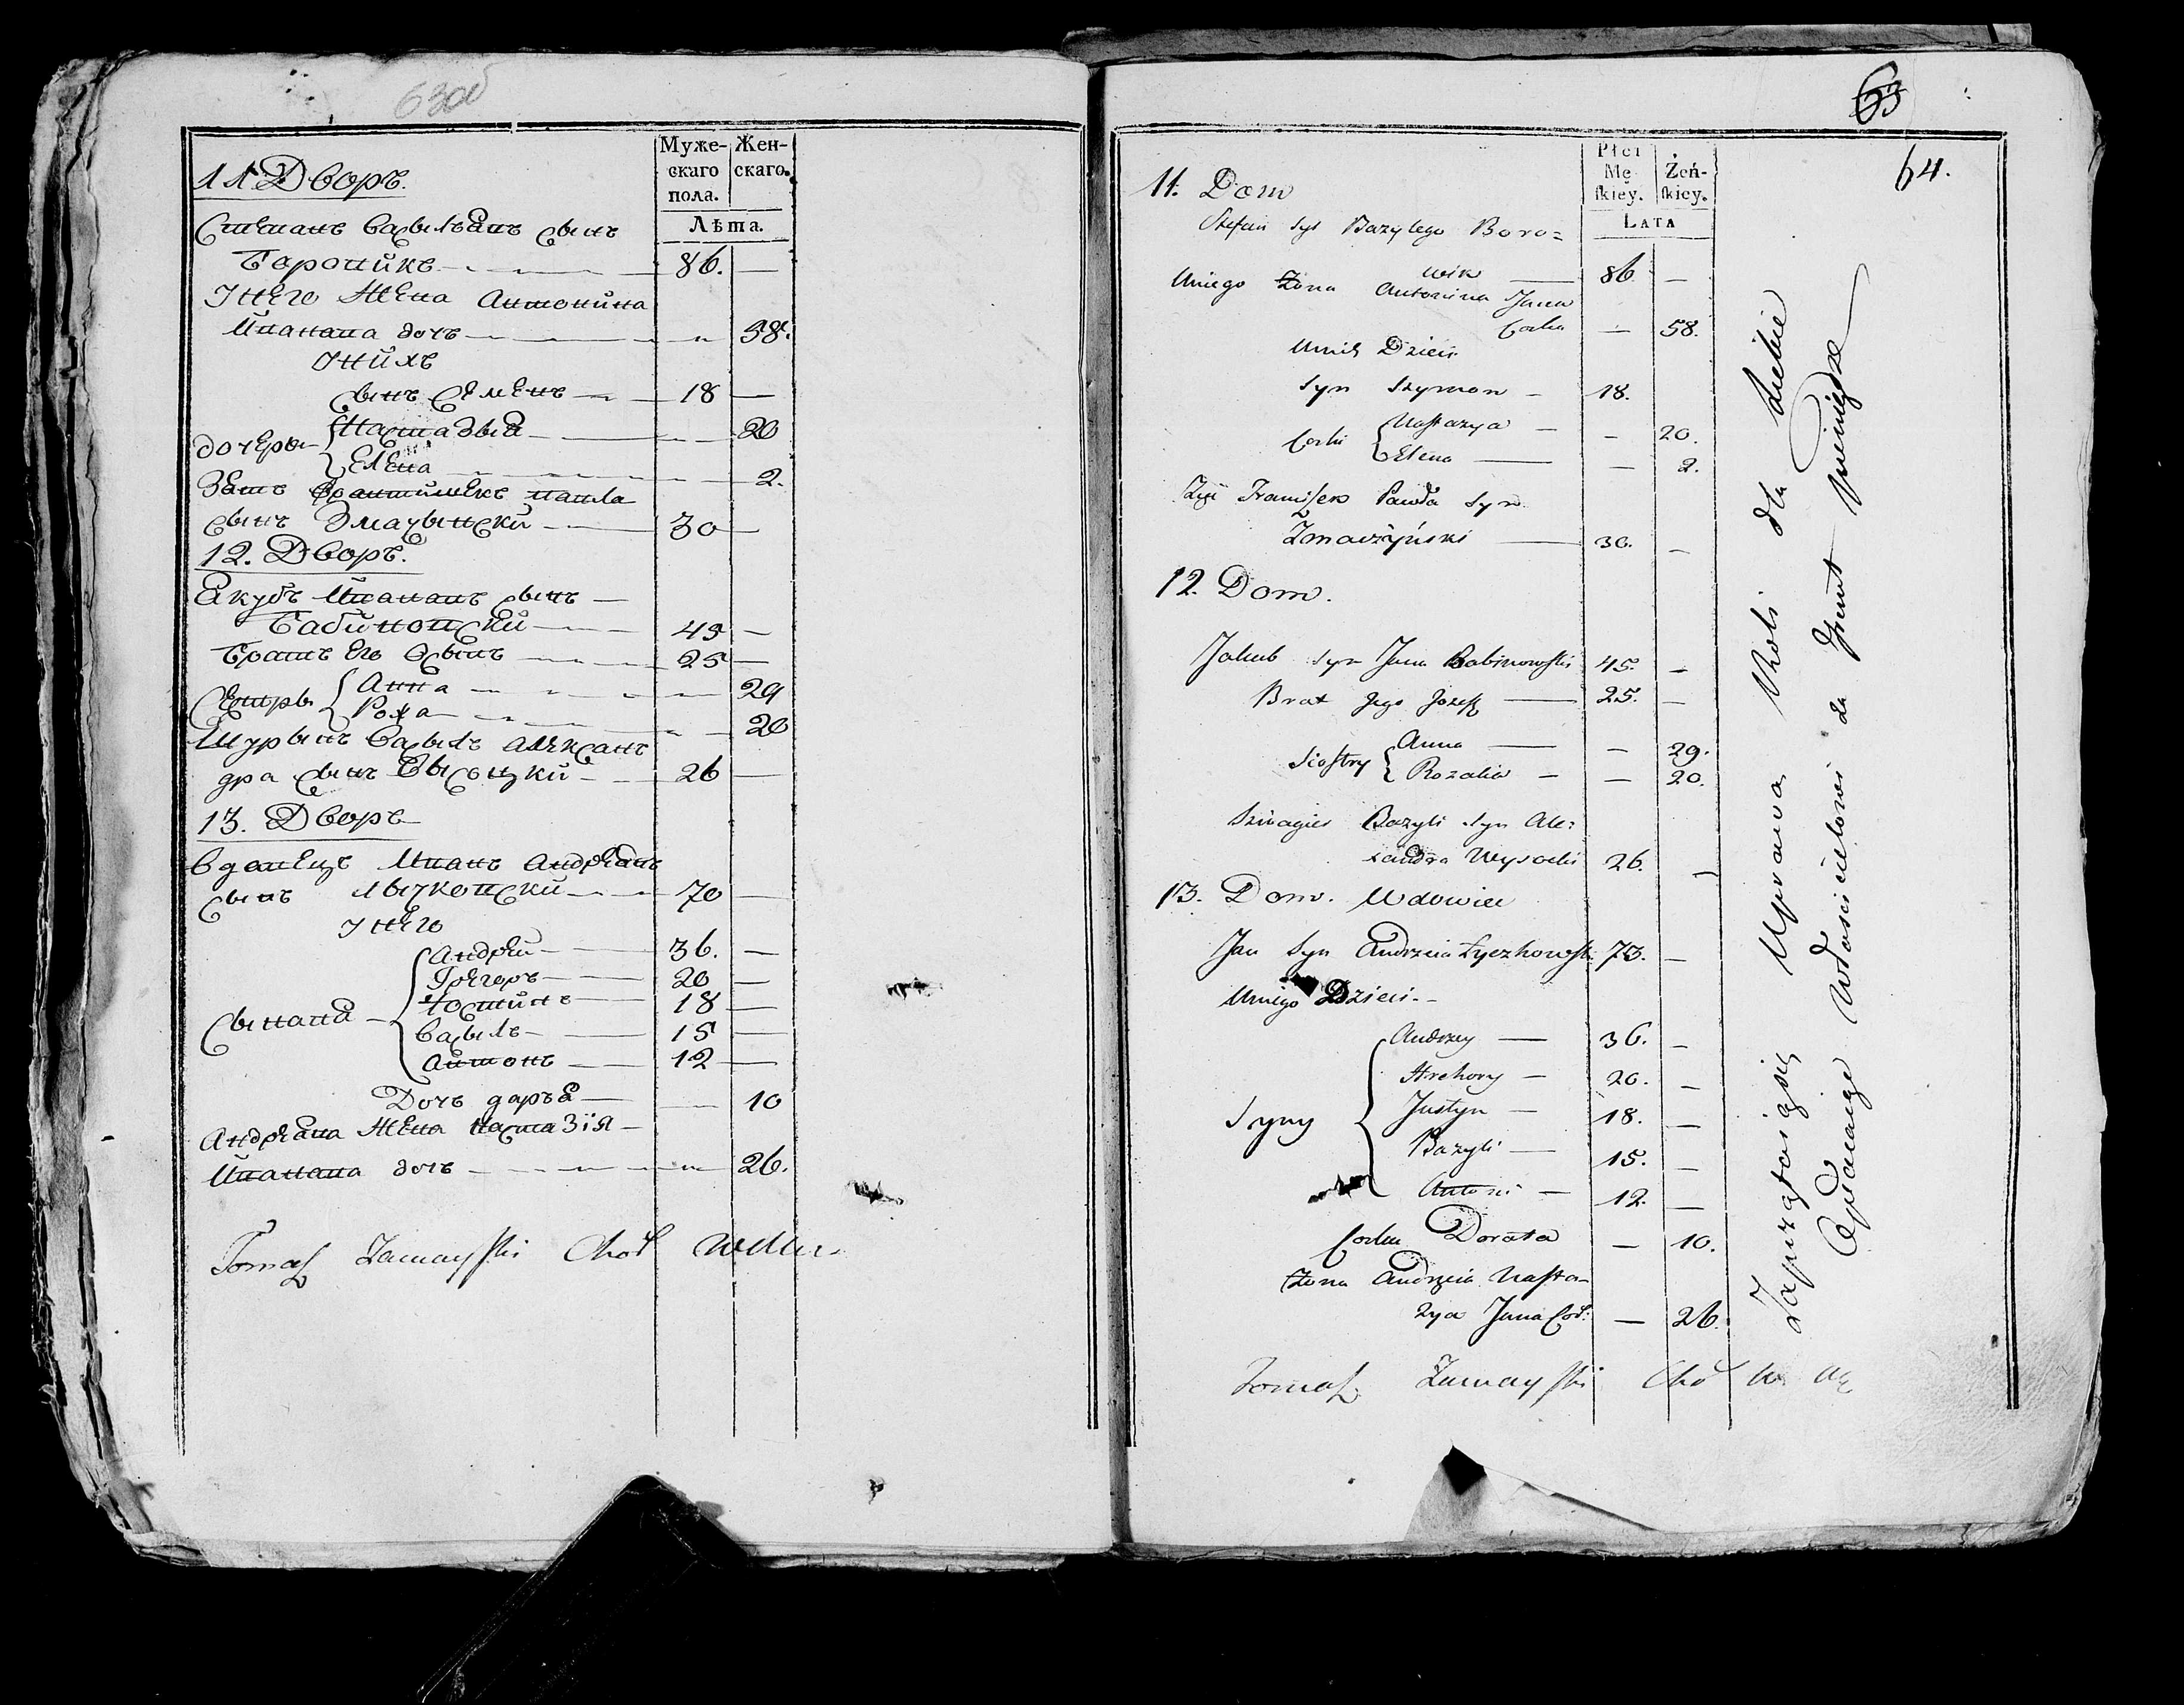 63об
Муже-
скаго
пола.
Жен-
скаго.
Лѣта.
11 Дворъ.
Степанъ Васыльевъ сынъ
Боровикъ 86. —
Унего жена Антонина
Иванава дочъ 58.
Унихъ
сынъ Семенъ 18 —
дочеры Настазыя 20
Елена 2.
Зять Францишекъ павла
сынъ Змачынски 30 —
12. Дворъ.
Якубъ Иванавъ сынъ —
Бабиновски 45 —
Братъ его Осыпъ 25 —
Сестры Анна 29
Роза 20
Шурынъ Васыль Алексан
дра сынъ Высоцки 26 —
13. Дворъ
Вдавецъ Иванъ Андреявъ
сынъ Лычковски 70 —
Унего
сынавя
Андрей 36. —
Грегоръ 20 —
Юстинъ 18 —
Васыль 15 —
Антонъ 12 —
Дочъ даръя 10
Андреява жена Настазія —
Иванава дочъ 26.
Tomasz Zamayski Choł
63
64.
Płci
Mę
skiey.
Żeń-
skiey.
LATA
11. Dom
Stefan syn Bazylego Boro=
wik 86 —
Uniego Żona Antonina Jana
Corka — 58.
Unich Dzieci
Syn Szymon — 18.
Corki Nastazya — — 20.
Elena — — 2.
Zięć Franciszek Pawła Syn
Zmaczyński — 30. —
12. Dom.
Jakub syn Jana Babinowski 45. —
Brat Jego Jozeff — 25. —
Siostry Anna — — 29.
Rozalia — — 20.
Szwagier Bazyli Syn Ale=
xandra Wysocki 26. —
13. Dom. Wdowiec
Jan Syn Andrzeia Łyczkowski 73. —
Uniego Dzieci —
Syny
Andrzey — 36. —
Hrehory — 20. —
Justyn — 18. —
Bazyli — 15. —
Antoni — 12. —
Corka Dorota — 10.
Żona Andrzeia Nasta-
zya Jana Cor: — 26.
Tomasz Zamayski Choł
Zaprzątaią się Uprawą Roli dla siebie
Opłacaiąc Włascicielowi za Grunt pieniądze